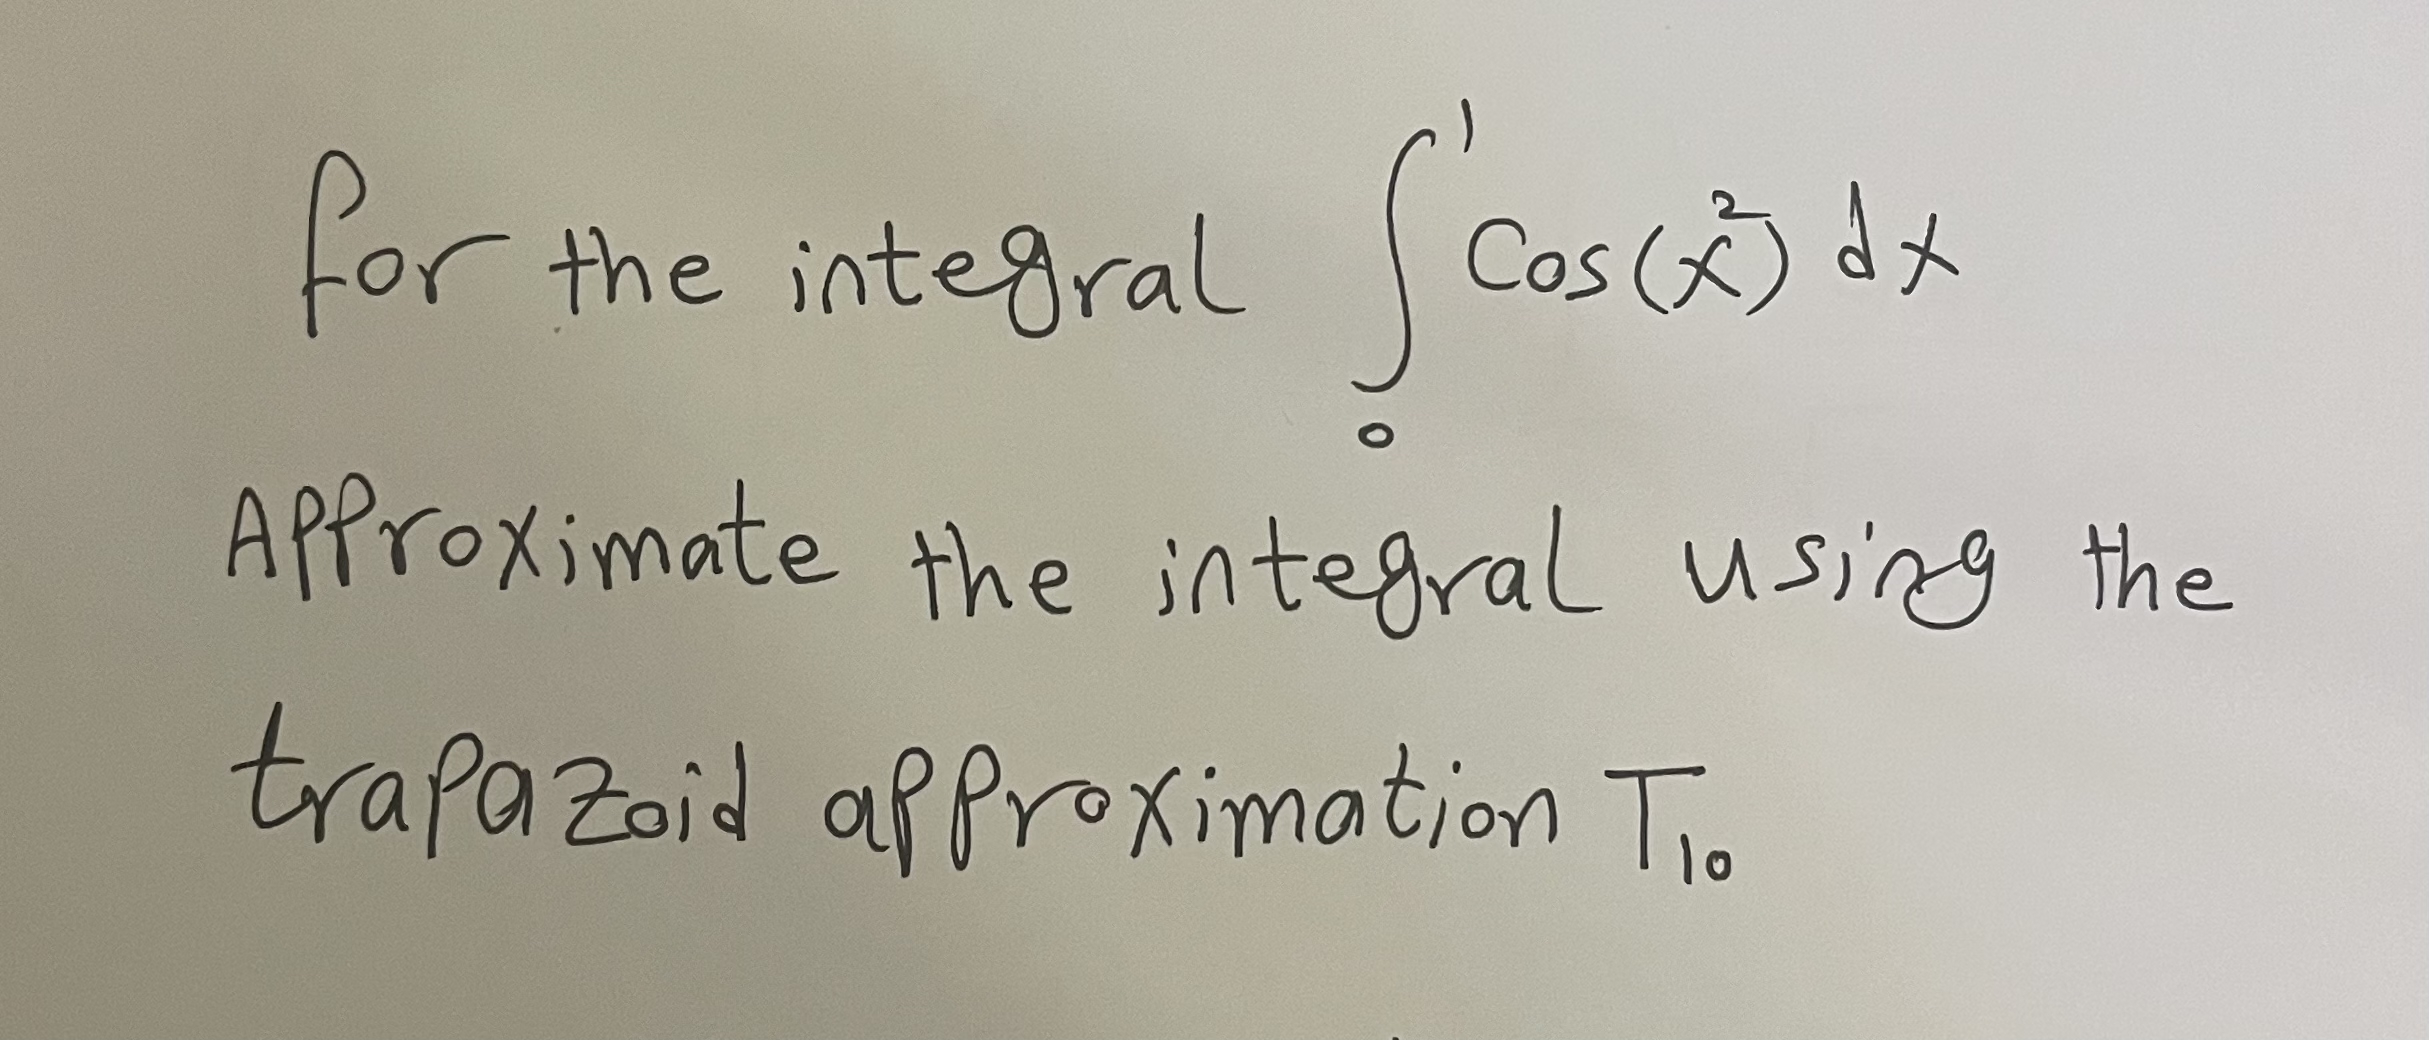 for the integral ∫₀¹ Cos(x²) dx
Approximate the integral using the
trapazoid approximation T₁₀